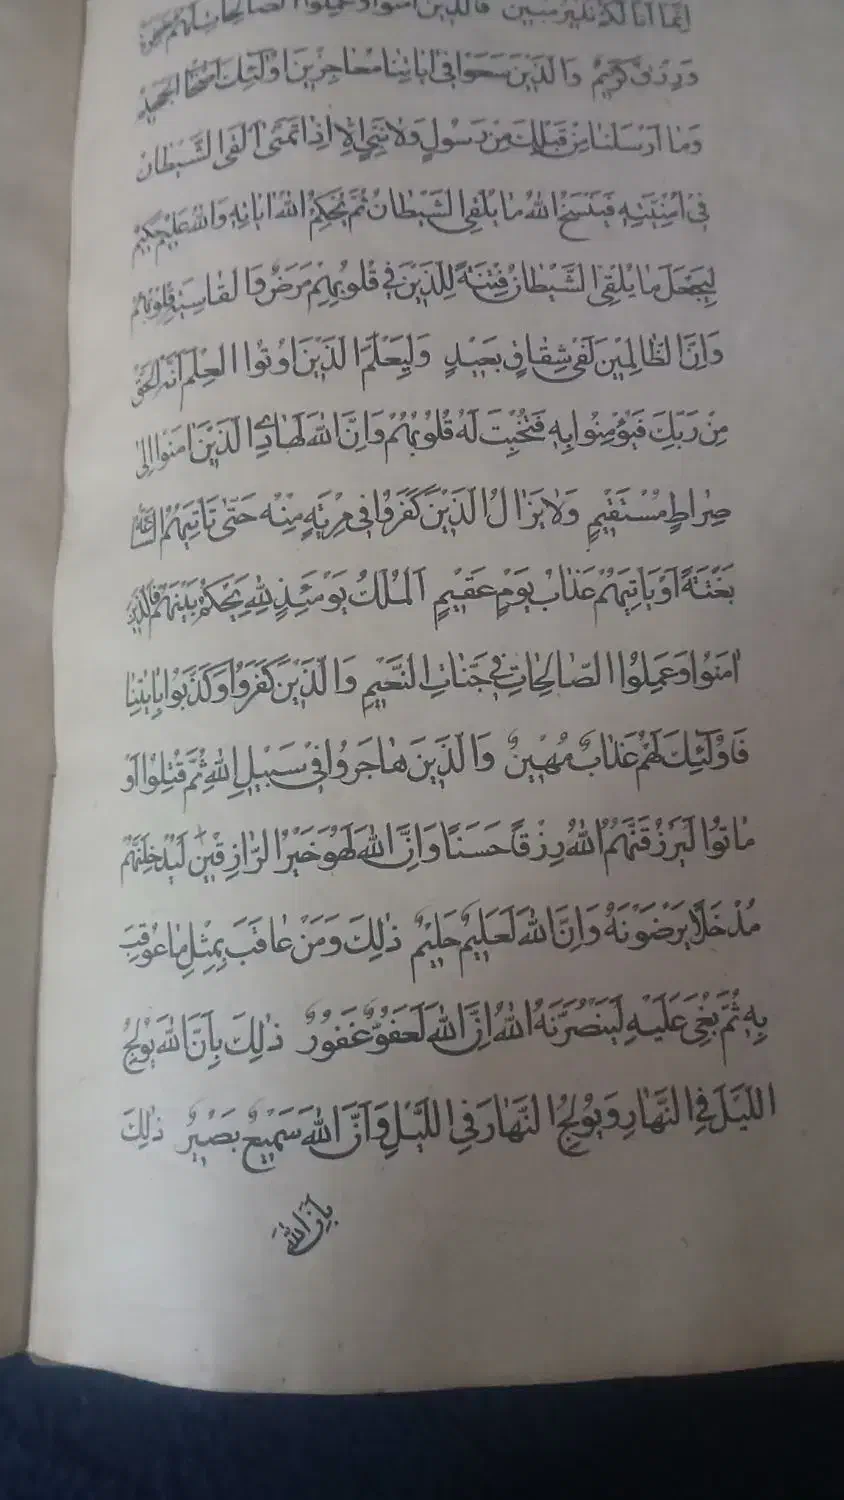 انما انا لكم نذير مبين فالذين امنوا وعملوا الصالحات لهم مغفرة
وَرِزْقٌ كَرِيمٌ وَالَّذِينَ سَعَوْا فِي اٰيَاتِنَا مُعَاجِزِينَ اُولٰئِكَ اَصْحَابُ الْجَحِيمِ
وَمَا اَرْسَلْنَا مِنْ قَبْلِكَ مِنْ رَسُولٍ وَلَا نَبِيٍّ اِلَّا اِذَا تَمَنّٰى اَلْقَى الشَّيْطَانُ
فِي اُمْنِيَّتِهِ فَيَنْسَخُ اللّٰهُ مَا يُلْقِي الشَّيْطَانُ ثُمَّ يُحْكِمُ اللّٰهُ اٰيَاتِهِ وَاللّٰهُ عَلِيمٌ حَكِيمٌ
لِيَجْعَلَ مَا يُلْقِي الشَّيْطَانُ فِتْنَةً لِلَّذِينَ فِي قُلُوبِهِمْ مَرَضٌ وَالْقَاسِيَةِ قُلُوبُهُمْ
وَاِنَّ الظَّالِمِينَ لَفِي شِقَاقٍ بَعِيدٍ وَلِيَعْلَمَ الَّذِينَ اُوتُوا الْعِلْمَ اَنَّهُ الْحَقُّ
مِنْ رَبِّكَ فَيُؤْمِنُوا بِهِ فَتُخْبِتَ لَهُ قُلُوبُهُمْ وَاِنَّ اللّٰهَ لَهَادِي الَّذِينَ اٰمَنُوا اِلٰى
صِرَاطٍ مُسْتَقِيمٍ وَلَا يَزَالُ الَّذِينَ كَفَرُوا فِي مِرْيَةٍ مِنْهُ حَتّٰى تَأْتِيَهُمُ السَّاعَةُ
بَغْتَةً اَوْ يَأْتِيَهُمْ عَذَابُ يَوْمٍ عَقِيمٍ اَلْمُلْكُ يَوْمَئِذٍ لِلّٰهِ يَحْكُمُ بَيْنَهُمْ فَالَّذِينَ
اٰمَنُوا وَعَمِلُوا الصَّالِحَاتِ فِي جَنَّاتِ النَّعِيمِ وَالَّذِينَ كَفَرُوا وَكَذَّبُوا بِاٰيَاتِنَا
فَاُولٰئِكَ لَهُمْ عَذَابٌ مُهِينٌ وَالَّذِينَ هَاجَرُوا فِي سَبِيلِ اللّٰهِ ثُمَّ قُتِلُوا اَوْ
مَاتُوا لَيَرْزُقَنَّهُمُ اللّٰهُ رِزْقًا حَسَنًا وَاِنَّ اللّٰهَ لَهُوَ خَيْرُ الرَّازِقِينَ لَيُدْخِلَنَّهُمْ
مُدْخَلًا يَرْضَوْنَهُ وَاِنَّ اللّٰهَ لَعَلِيمٌ حَلِيمٌ ذٰلِكَ وَمَنْ عَاقَبَ بِمِثْلِ مَا عُوقِبَ
بِهِ ثُمَّ بُغِيَ عَلَيْهِ لَيَنْصُرَنَّهُ اللّٰهُ اِنَّ اللّٰهَ لَعَفُوٌّ غَفُورٌ ذٰلِكَ بِاَنَّ اللّٰهَ يُولِجُ
اللَّيْلَ فِي النَّهَارِ وَيُولِجُ النَّهَارَ فِي اللَّيْلِ وَاَنَّ اللّٰهَ سَمِيعٌ بَصِيرٌ ذٰلِكَ
بِاَنَّ اللّٰهَ